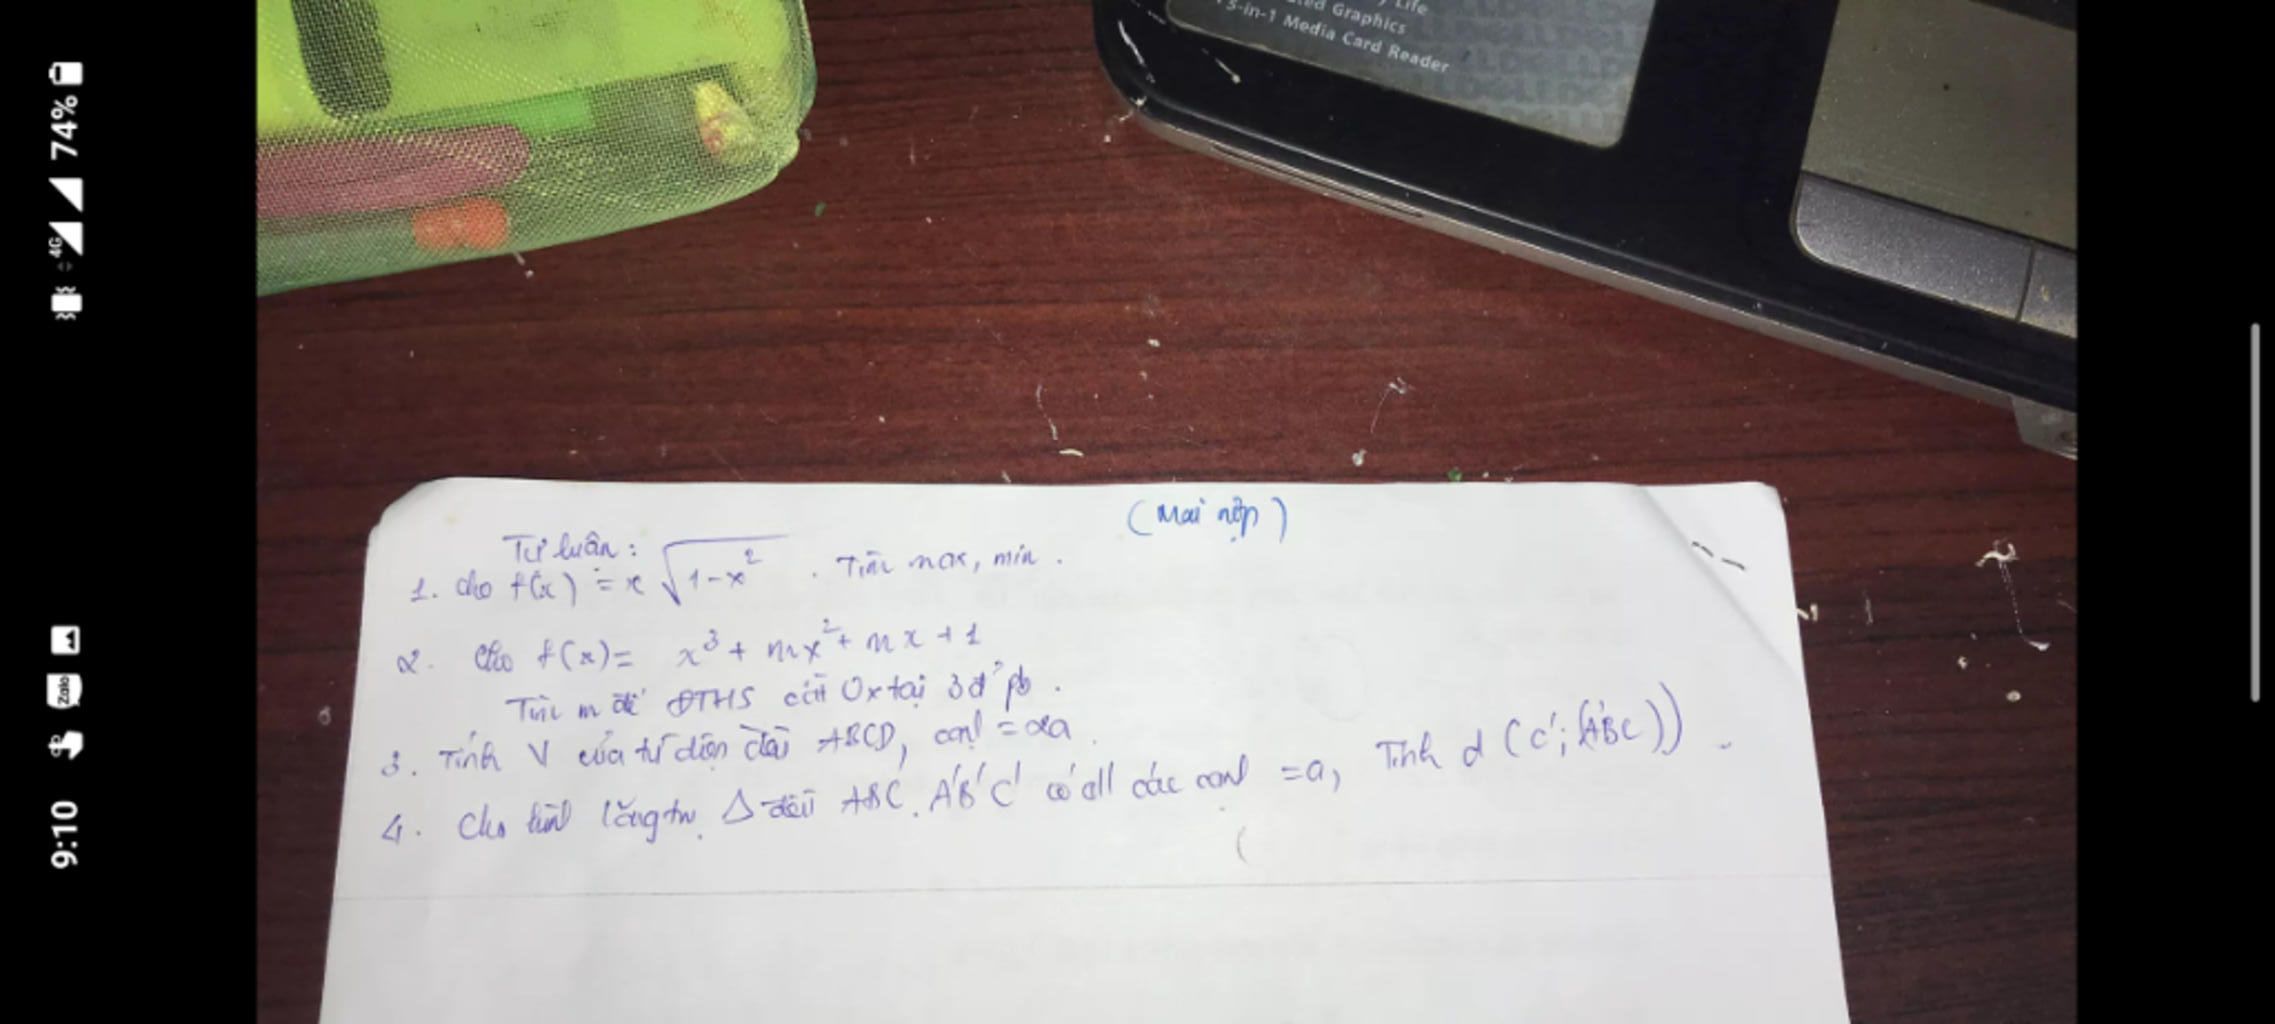 74%
4G
Zalo
9:10
y Life
ted Graphics
5-in-1 Media Card Reader
(Mai nộp)
Tự luận:
1. Cho f(x) = x √(1-x²) . Tìm max, min.
2. Cho f(x) = x³ + mx² + mx + 1
Tìm m để ĐTHS cắt Ox tại 3 đ' pb.
3. Tính V của tứ diện đều ABCD, cạnh = 2a.
4. Cho hình lăng trụ Δ đều ABC.A'B'C' có all các cạnh = a, Tính d (C'; (A'BC)).